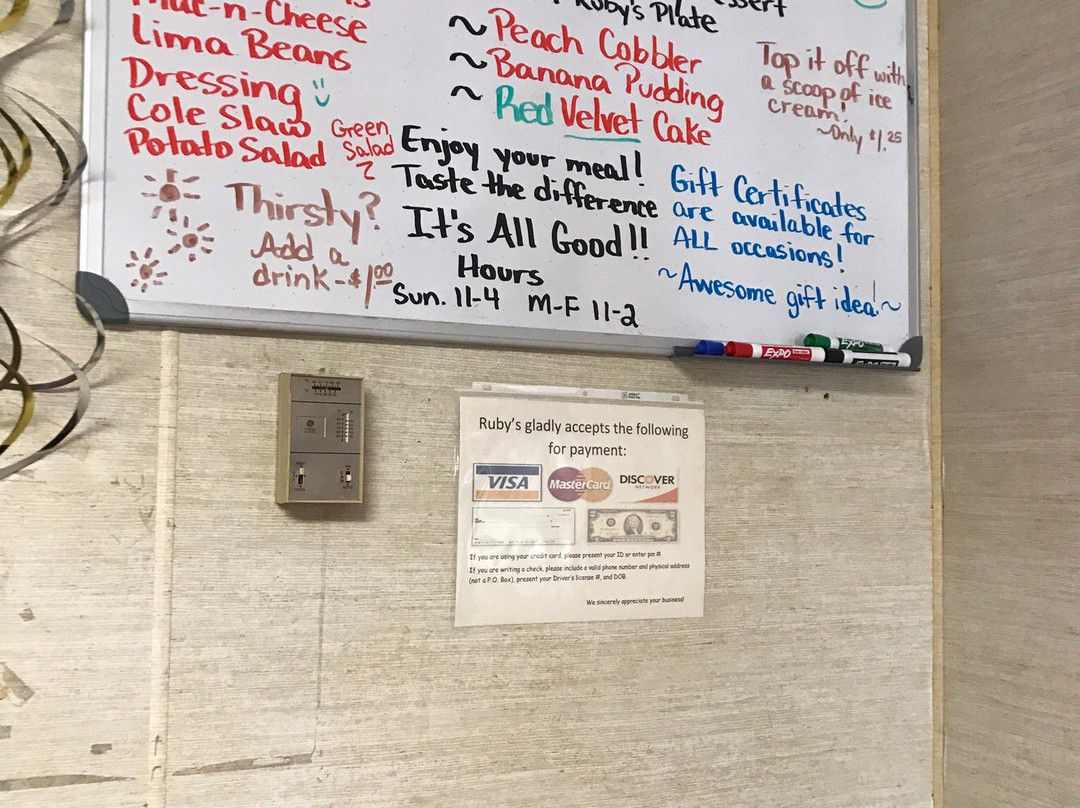 Mac-n-Cheese
Lima Beans
Dressing
Cole Slaw
Potato Salad
Green
Salad
Ruby's Plate
~ Peach Cobbler
~ Banana Pudding
~ Red Velvet Cake
Top it off with
a scoop of ice
cream!
~Only $1.25
Thirsty?
Add a
drink-$1.00
Enjoy your meal!
Taste the difference
It's All Good!!
Hours
Sun. 11-4 M-F 11-2
Gift Certificates
are available for
ALL occasions!
~Awesome gift idea!~
EXPO
EXPO
Ruby's gladly accepts the following
for payment:
VISA
MasterCard
DISCOVER
NETWORK
If you are using your credit card, please present your ID or enter pin #.
If you are writing a check, please include a valid phone number and physical address
(not a P.O. Box), present your Driver's license #, and DOB.
We sincerely appreciate your business!